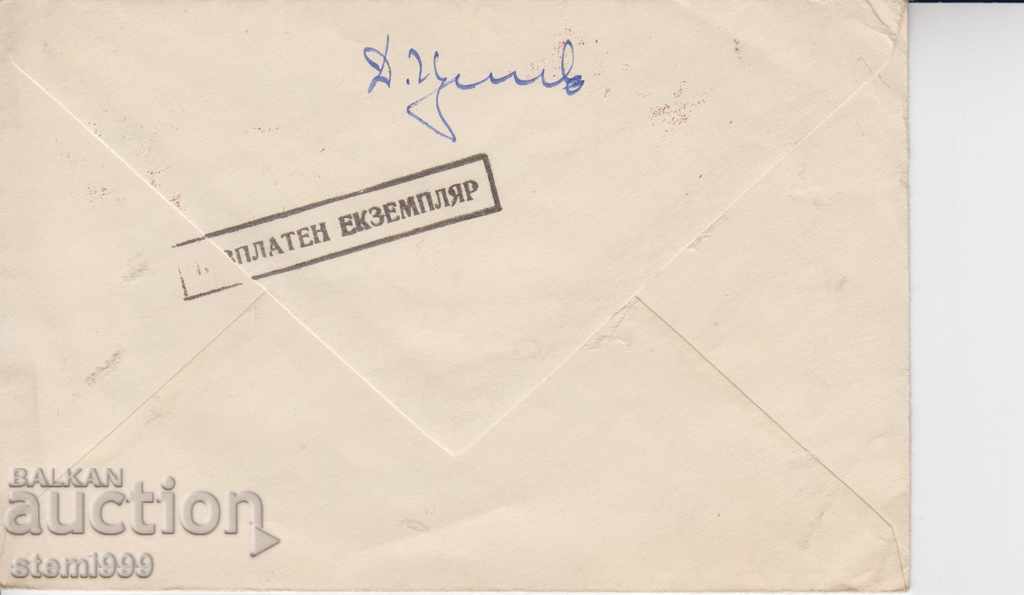 ПЛАТЕН ЕКЗЕМПЛЯР
BALKAN
auction
stemi999